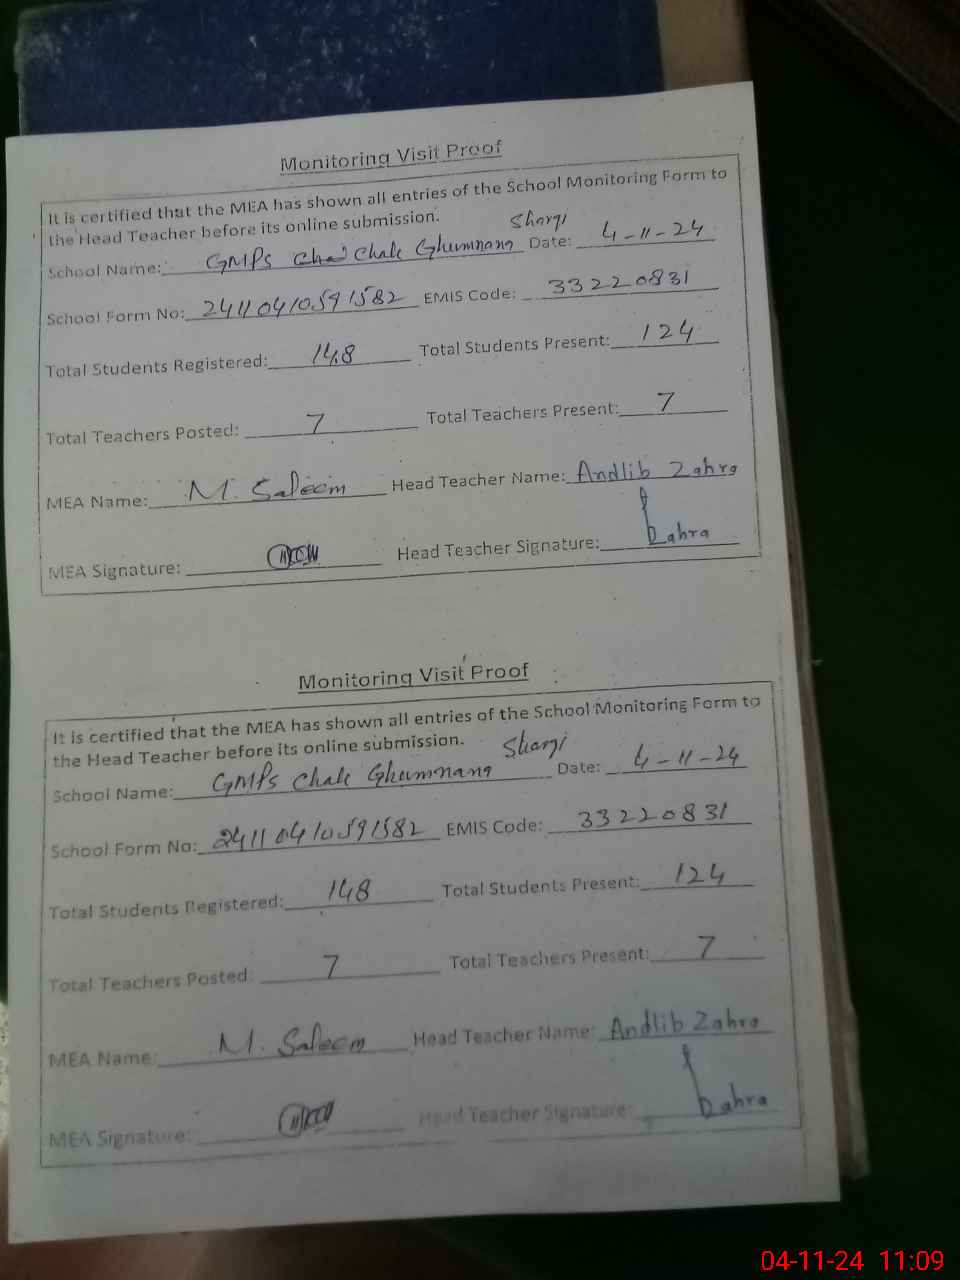 Monitoring Visit Proof
It is certified that the MEA has shown all entries of the School Monitoring Form to
the Head Teacher before its online submission.
School Name: GMPS Chak Ghumnang Sharqi Date: 4-11-24
School Form No: 24110410591582 EMIS Code: 33220831
Total Students Registered: 148 Total Students Present: 124
Total Teachers Posted: 7 Total Teachers Present: 7
MEA Name: M. Saleem Head Teacher Name: Andlib Zahra
MEA Signature: Head Teacher Signature: Zahra
Monitoring Visit Proof
It is certified that the MEA has shown all entries of the School Monitoring Form to
the Head Teacher before its online submission.
School Name: GMPS Chak Ghumnang Sharqi Date: 4-11-24
School Form No: 24110410591582 EMIS Code: 33220831
Total Students Registered: 148 Total Students Present: 124
Total Teachers Posted: 7 Total Teachers Present: 7
MEA Name: M. Saleem Head Teacher Name: Andlib Zahra
MEA Signature: Head Teacher Signature: Zahra
04-11-24 11:09